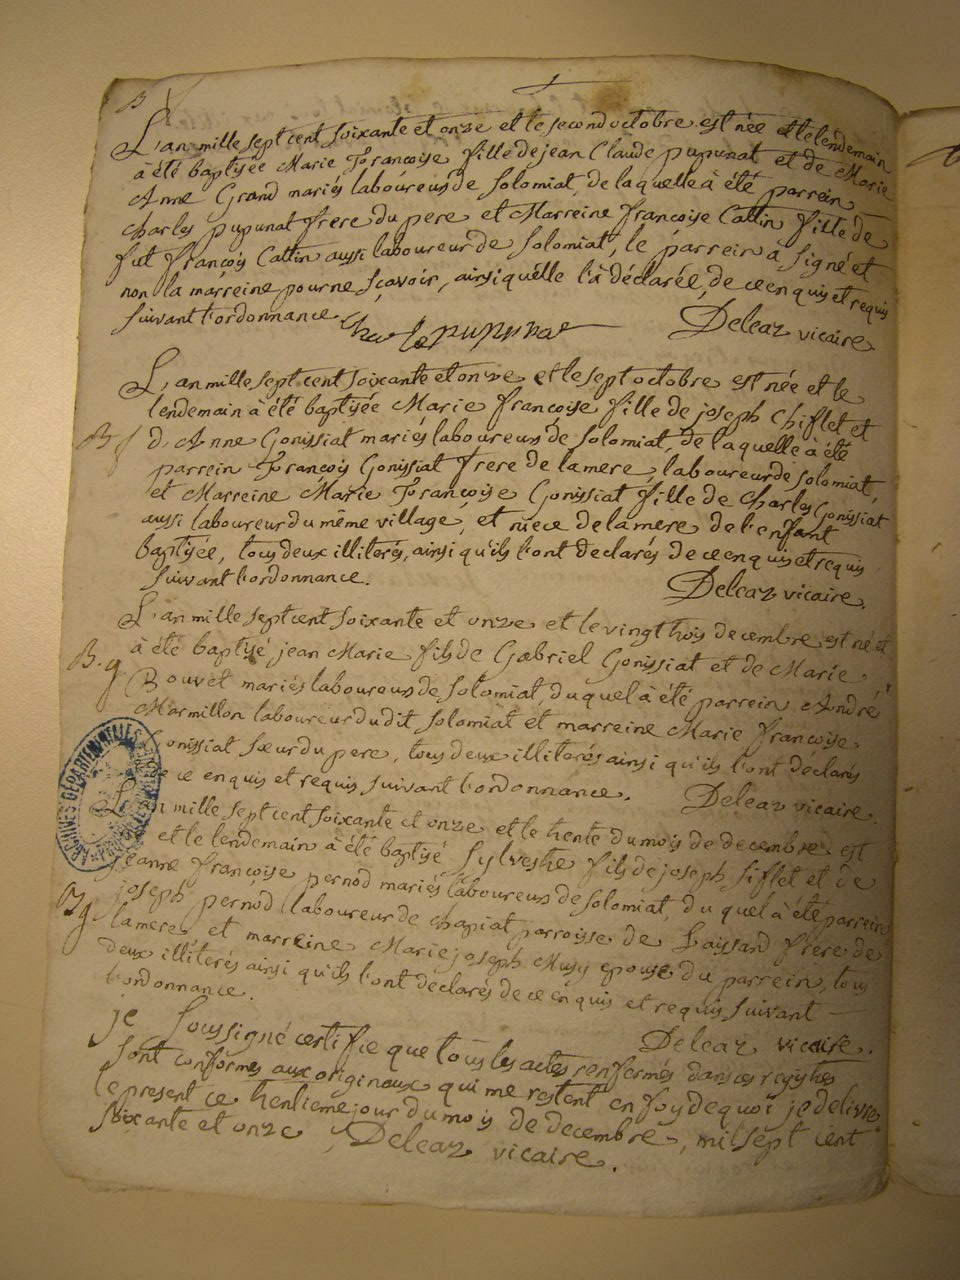 B
L'an mille sept cent soixante et onze et le second octobre est née et le lendemain
à été baptisée Marie Francoise fille de jean Claude pupunat et de Marie
Anne Grand mariés laboureurs de Solomiat, de laquelle à été parrein
charles pupunat frere du pere et Marreine françoise Cattin fille de
fut françois Cattin aussi laboureur de Solomiat, le parrein à signé et
non la marreine pour ne sçavoir, ainsi quélle l'a déclarée, de ce enquis et requis
suivant l'ordonnance. pupunat Deleaz vicaire
L'an mille sept cent soixante et onze et le sept octobre est née et le
lendemain à été baptisée Marie françoise fille de joseph Chiflet et
B f d'Anne Gonissiat mariés laboureurs de Solomiat, de laquelle à été
parrein François Gonissiat frere de la mere, laboureur de Solomiat,
et Marreine Marie Françoise Gonissiat fille de Charles Gonissiat
aussi laboureur du même village, et niece de la mere de l'enfant
baptisée, tous deux illiterés, ainsi qu'ils l'ont declarés de ce enquis et requis
suivant l'ordonnance. Deleaz vicaire.
L'an mille sept cent soixante et onze et le vingt trois decembre est né et
à été baptisé jean Marie fils de Gabriel Gonissiat et de Marie
B. g Bouvet mariés laboureurs de Solomiat, duquel à été parrein André
Marmillon laboureur dudit Solomiat et marreine Marie françoise
onissiat sœur du pere, tous deux illiterés ainsi qu'ils l'ont declarés
de ce enquis et requis suivant l'ordonnance. Deleaz vicaire.
ARCHIVES DÉPARTEMENTALES
L'an mille sept cent soixante et onze et le trente du mois de decembre est
et le lendemain à été baptisé Sylvestre fils de joseph Siflet et de
jeanne françoise pernod mariés laboureurs de Solomiat, duquel à été parrein
B g joseph pernod laboureur de chapiat parroisse de Laissard frere de
la mere et marreine Marie joseph Musy epouse du parrein, tous
deux illiterés ainsi qu'ils l'ont declarés de ce enquis et requis suivant
l'ordonnance. Deleaz vicaire.
je soussigné certifie que tous les actes renfermés dans ces registres
sont conformes aux originaux qui me restent en foy de quoi je delivre
le present ce trentieme jour du mois de decembre, mil sept cent
soixante et onze, Deleaz vicaire.